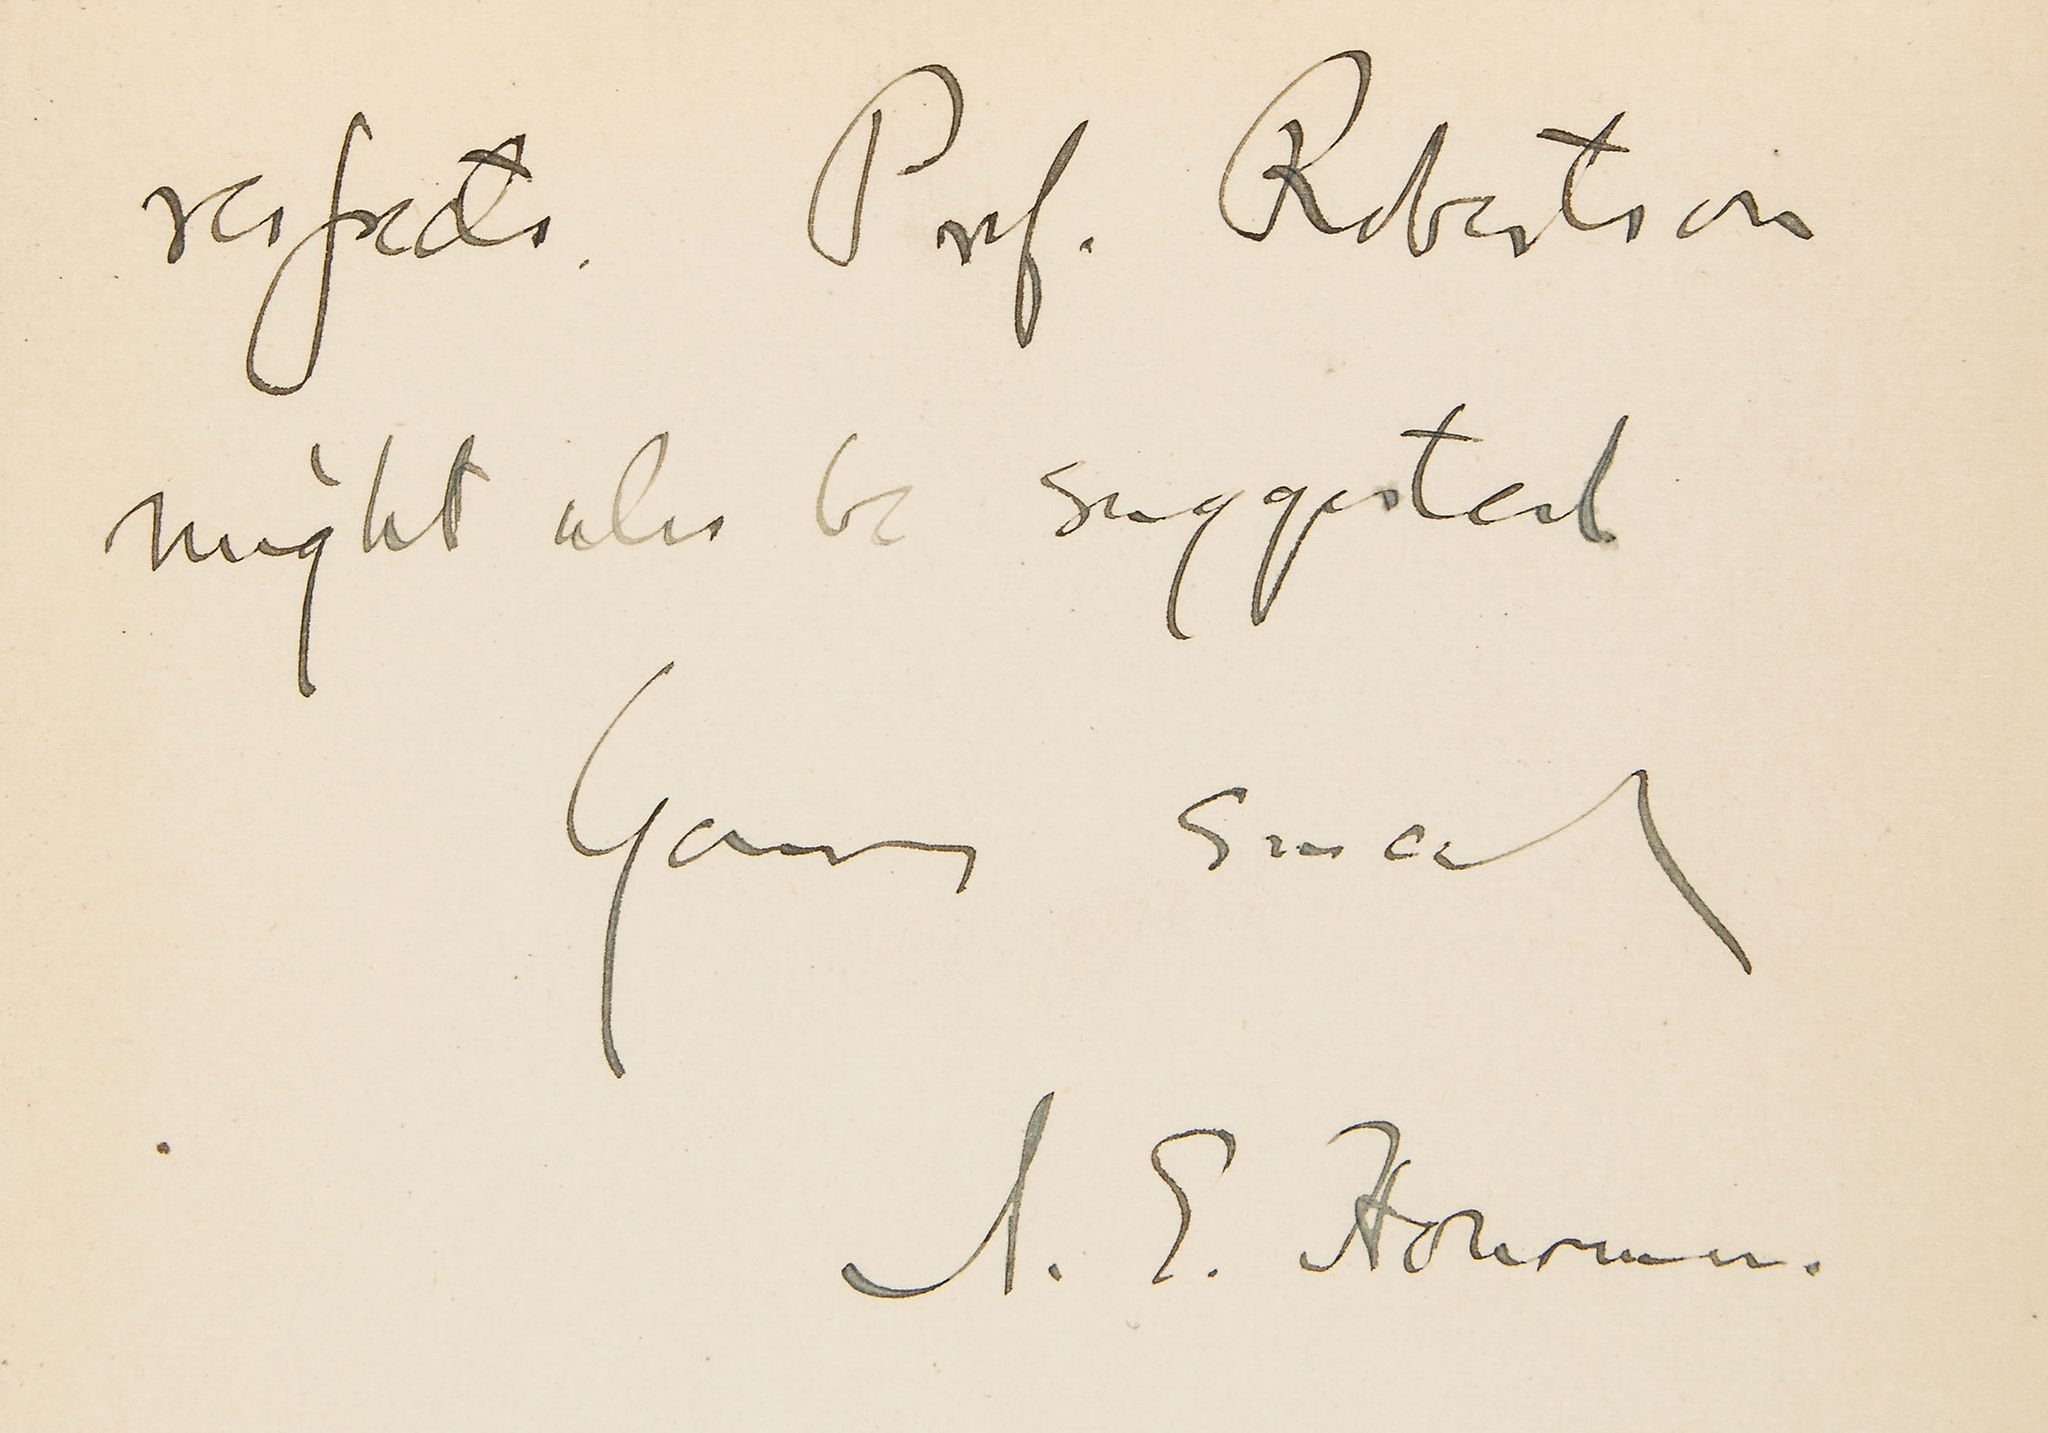 respects. Prof. Robertson
might also be suggested
Yours sincerely
A. E. Housman.